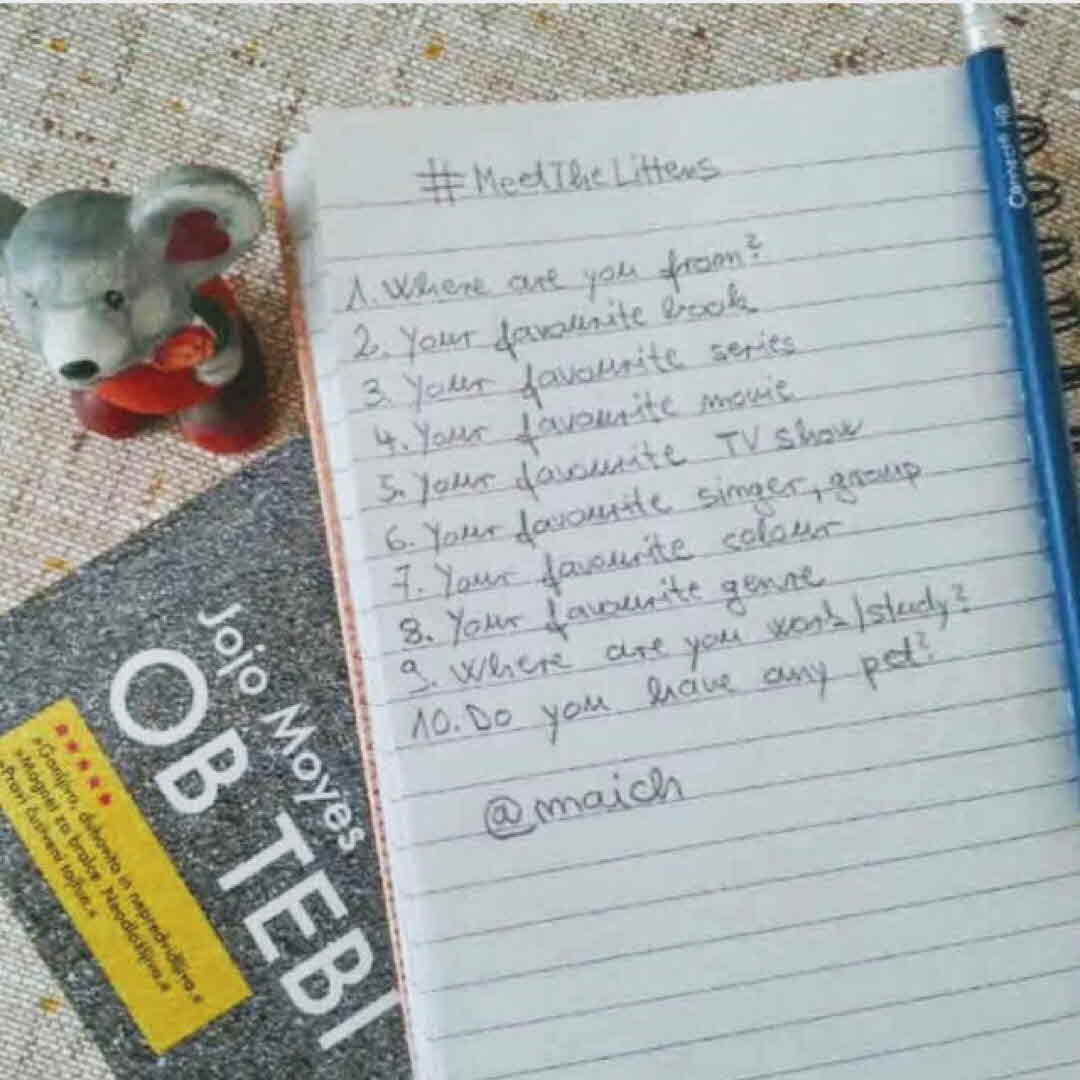 #MeetTheLittens
1. Where are you from?
2. Your favourite book
3. Your favourite series
4. Your favourite movie
5. Your favourite TV show
6. Your favourite singer, group
7. Your favourite colour
8. Your favourite genre
9. Where are you work/study?
10. Do you have any pet?
@maich
Jojo Moyes
OB TEBI
»Ganljivo, duhovito in nepredvidljivo.«
»Magnet za bralce. Neodložljivo.«
»Pravi čustveni